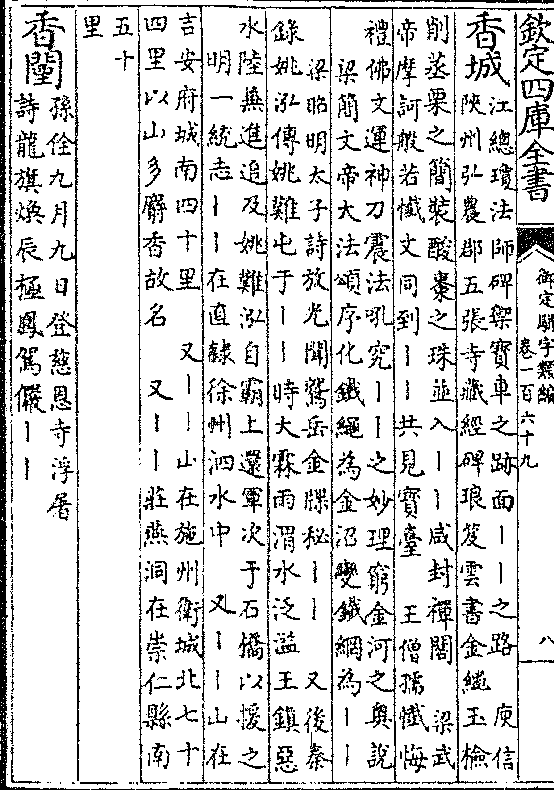 欽定四庫全書
御定駢字類編
卷一百六十九
八
香城
江總瓊法師碑禦寶車之跡面丨丨之路 庾信
陜州弘農郡五張寺藏經碑琅笈雲書金繩玉檢
削蒸栗之簡裝酸棗之珠並入丨丨咸封禪閣 梁武
帝摩訶般若懺文同到丨丨共見寶臺 王僧孺懺悔
禮佛文運神刀震法吼究丨丨之妙理窮金河之奧說
梁簡文帝大法頌序化鐵繩為金沼變鐵網為丨丨
梁昭明太子詩放光聞鷲岳金牒秘丨丨 又後秦
錄姚泓傳姚難屯于丨丨時大霖雨渭水泛溢王鎮惡
水陸兼進追及姚難泓自霸上還軍次于石橋以援之
明一統志丨丨在直隸徐州泗水中 又丨丨山在
吉安府城南四十里 又丨丨山在施州衛城北七十
四里以山多麝香故名 又丨丨莊燕洞在崇仁縣南
五十
里
香闉
孫佺九月九日登慈恩寺浮屠
詩龍旗煥辰極鳳駕儼丨丨